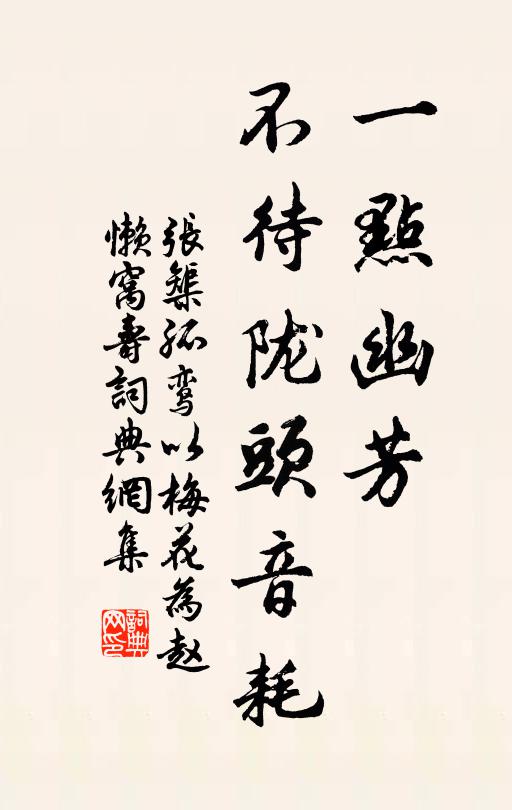 一點幽芳
不待陇頭音耗
張榘孤鸾以梅花為赵
懒窩壽詞典網集
詞典
网印